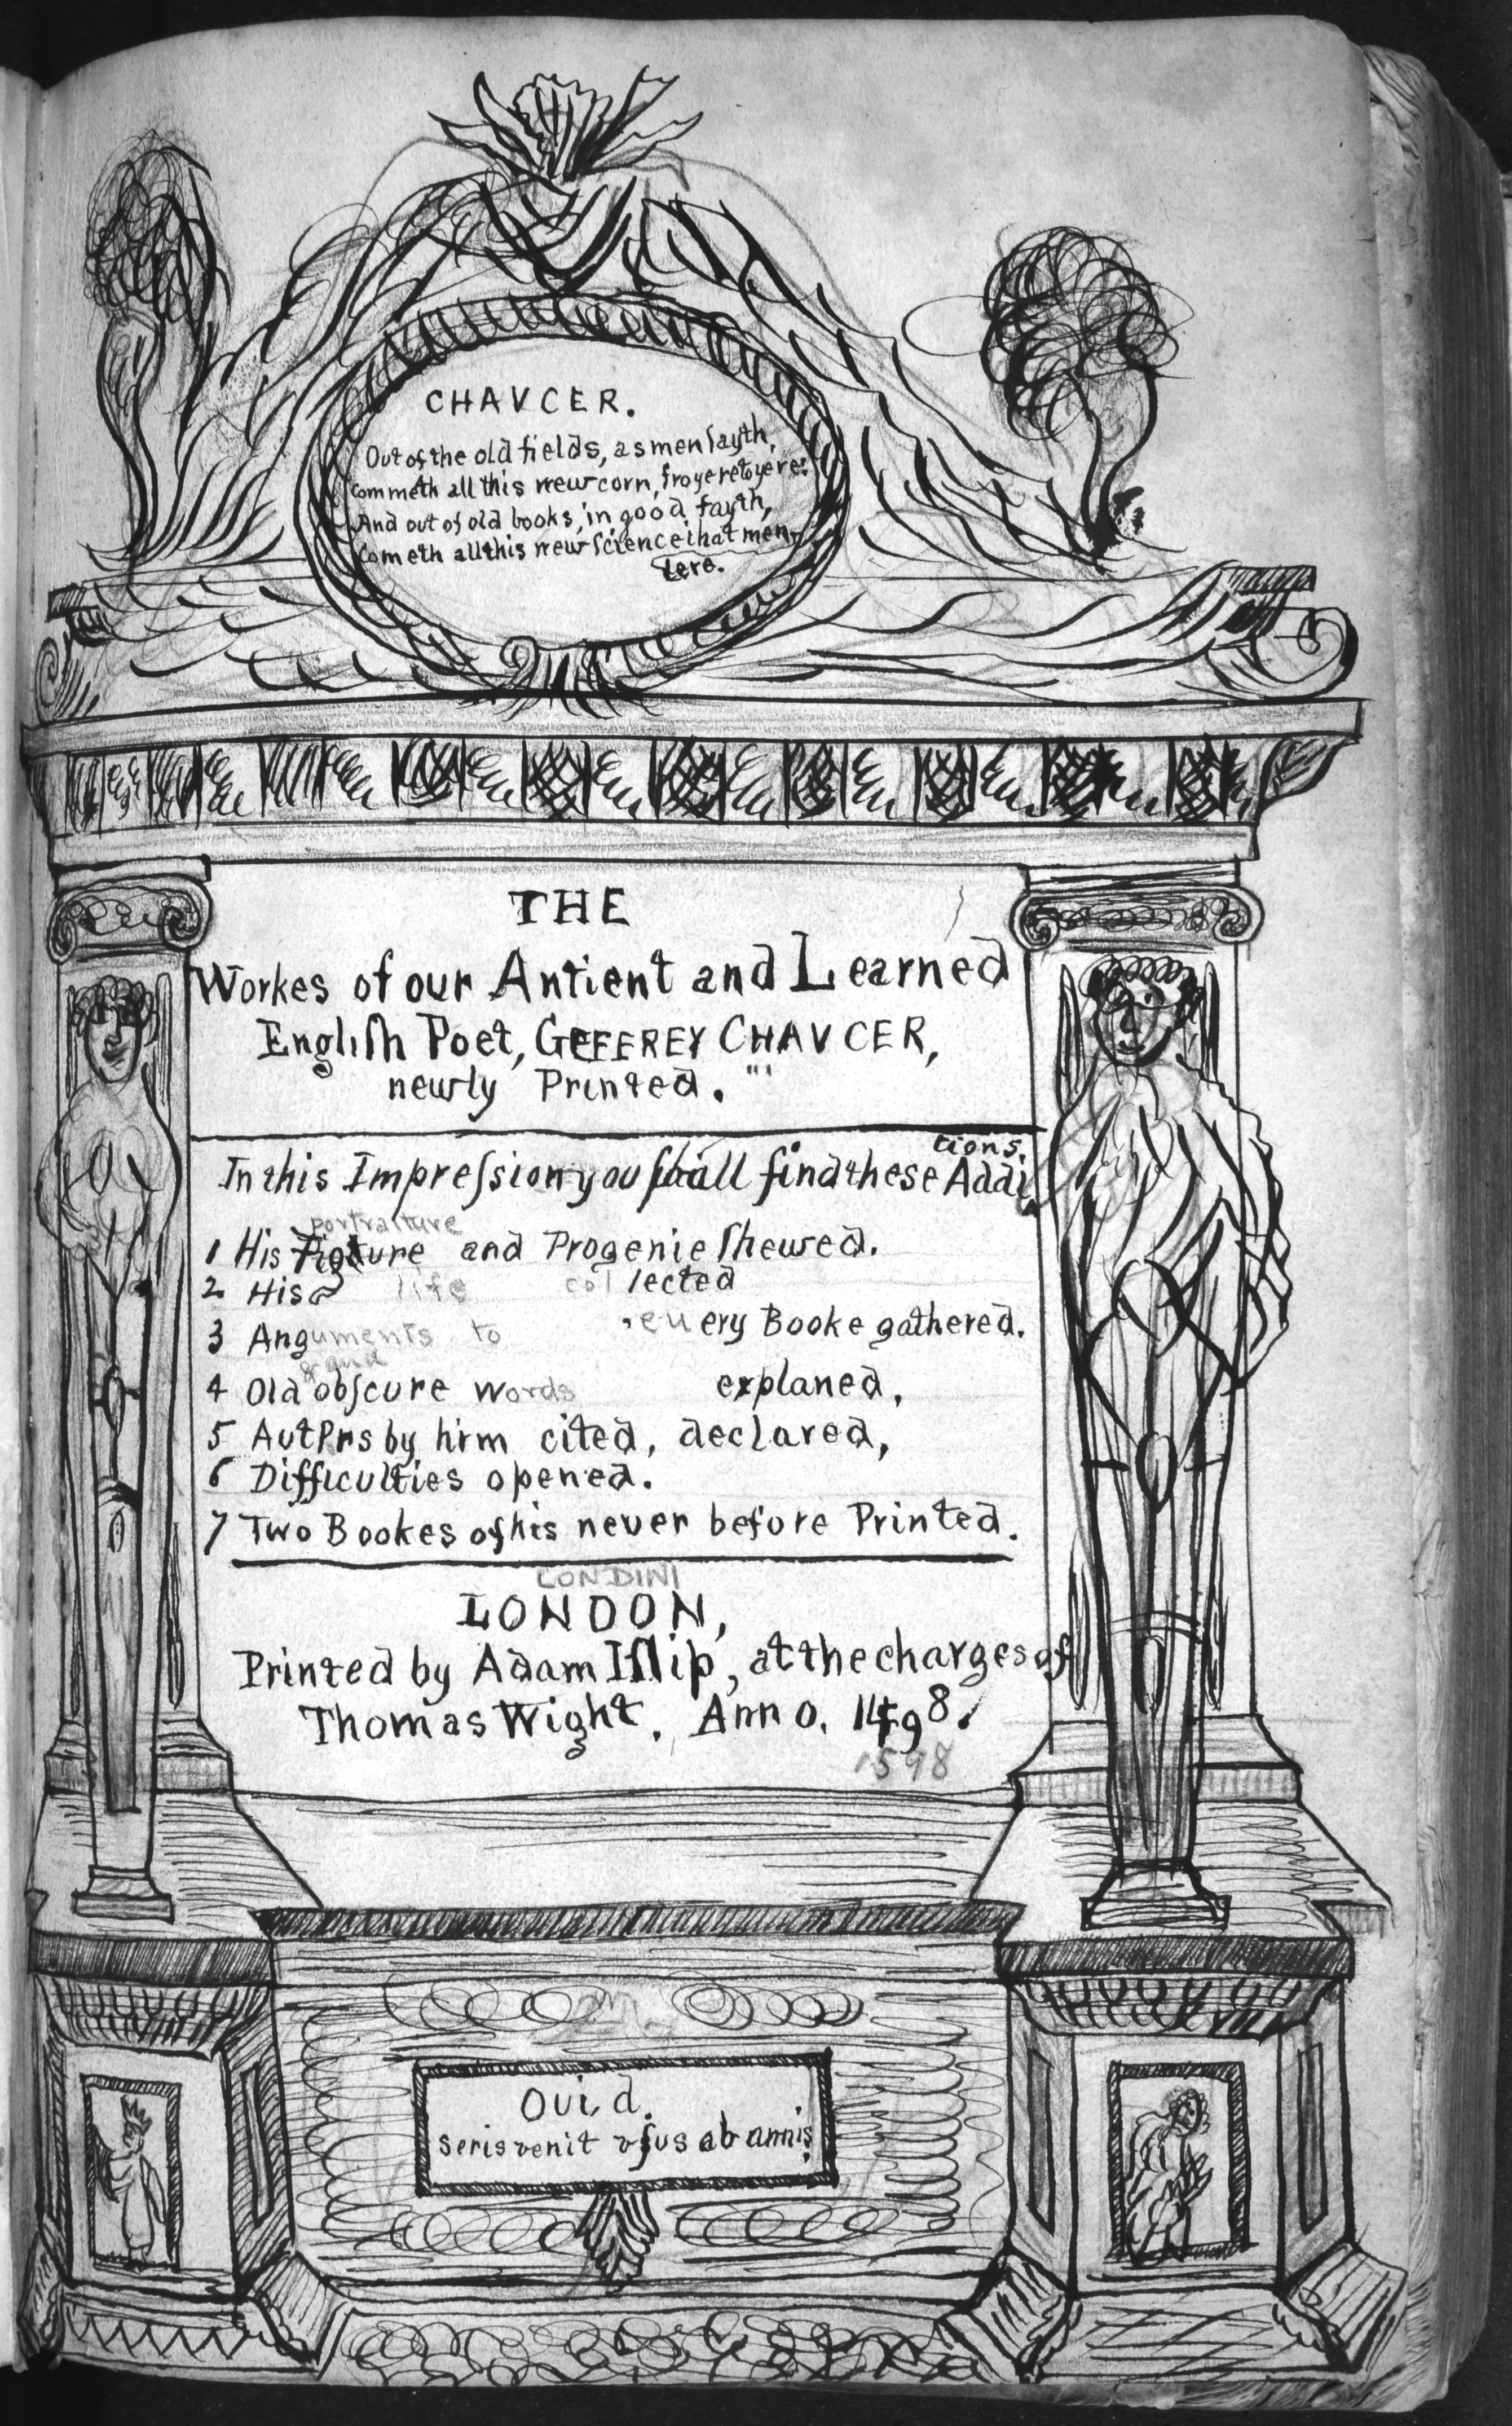 CHAVCER.
Out of the old fields, as men ſayth,
Commeth all this new corn, fro yere to yere:
And out of old books, in good fayth,
Cometh all this new ſcience that men
lere.
THE
Workes of our Antient and Learned
Engliſh Poet, GEFFREY CHAVCER,
newly Printed.
tions.
In this Impreſsion you ſhall find these Addi
portraiture
1 His Picture and Progenie ſhewed.
2 His life collected
3 Anguments to euery Booke gathered.
& and
4 Old obſcure words explaned,
5 AutPrs by him cited, declared,
6 Difficulties opened.
7 Two Bookes of his never before Printed.
LONDINI
LONDON,
Printed by Adam Iſlip, at the charges of
Thomas Wight. Anno. 1498.
1598
Ouid.
seris venit vſus ab annis